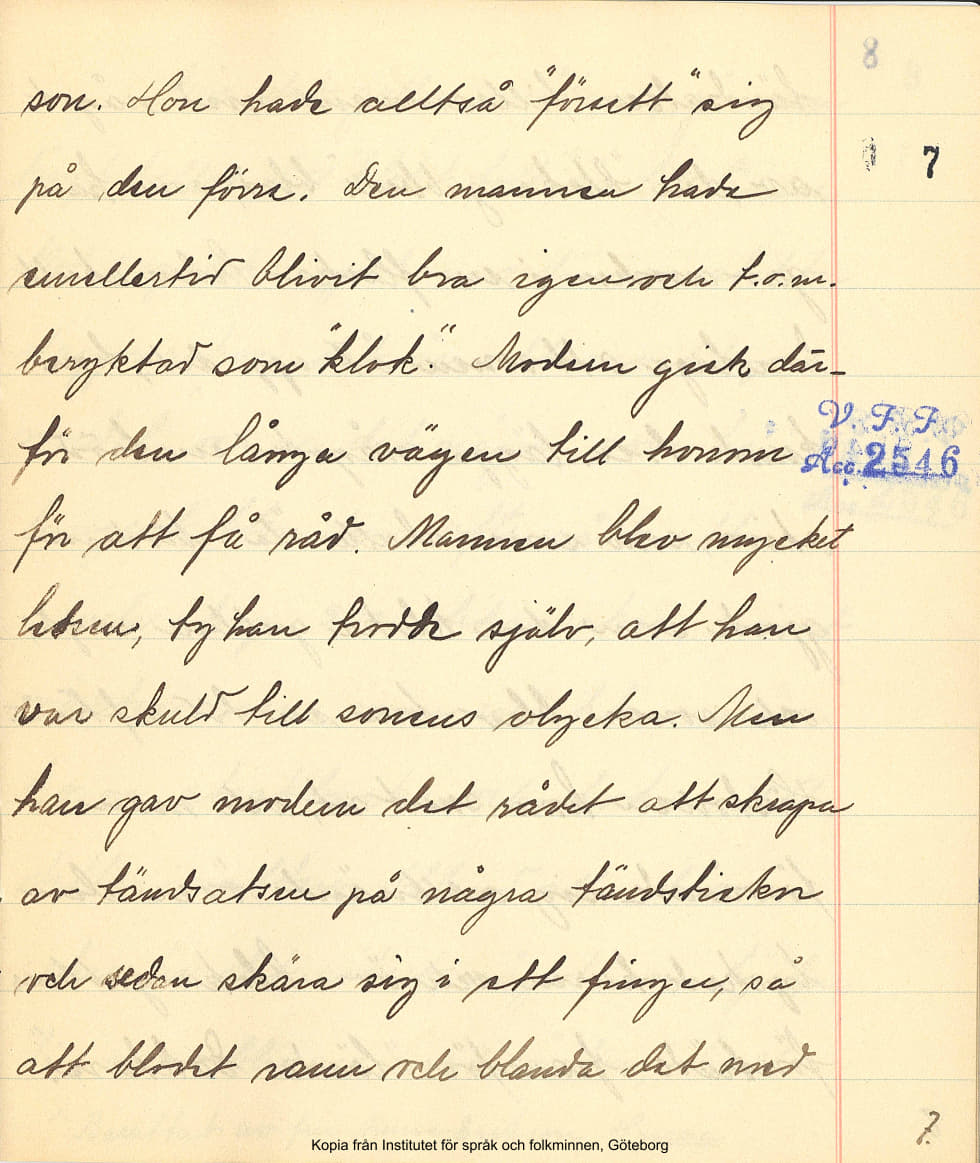 8
son. Hon hade alltså "försett" sig
7
på den förre. Den mannen hade
emellertid blivit bra igen och t.o.m.
beryktad som "klok". Modern gick där-
V. F. F.
för den långa vägen till honom
Acc. 2546
för att få råd. Mannen blev mycket
ledsen, ty han trodde själv, att han
var skuld till sonens olycka. Men
han gav modern det rådet att skrapa
av tändsatsen på några tändstickor
och sedan skära sig i ett finger, så
att blodet rann och blanda det med
7.
Kopia från Institutet för språk och folkminnen, Göteborg